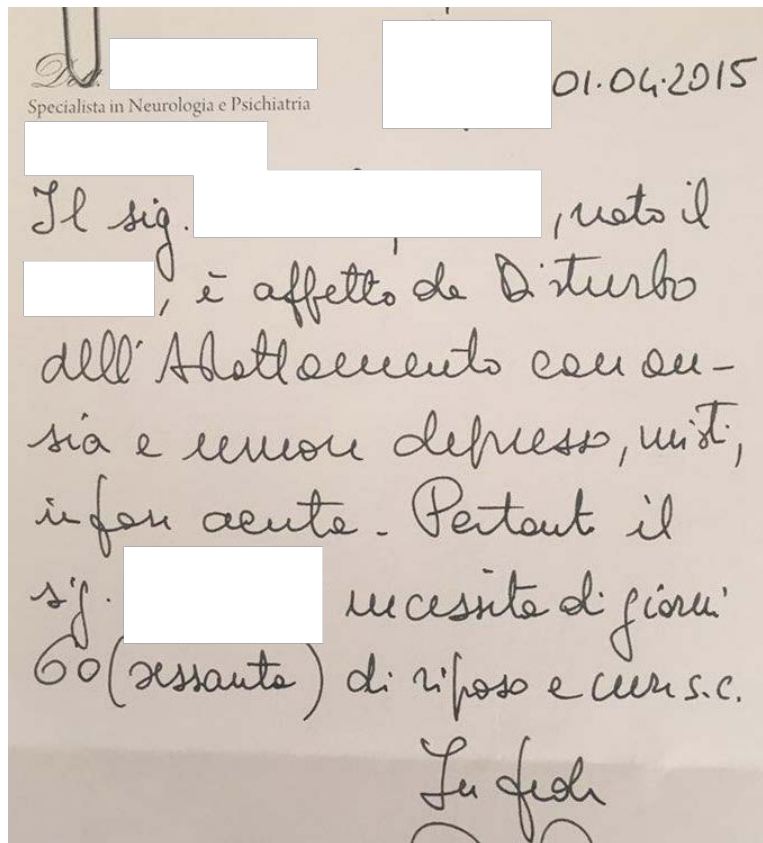 Dott.
Specialista in Neurologia e Psichiatria
01.04.2015
Il sig. , nato il
, è affetto da Disturbo
dell'Adattamento con an-
sia e umore depresso, misti,
in fase acuta. Pertanto il
sig. necessita di giorni
60 (sessanta) di riposo e cure s.c.
In fede